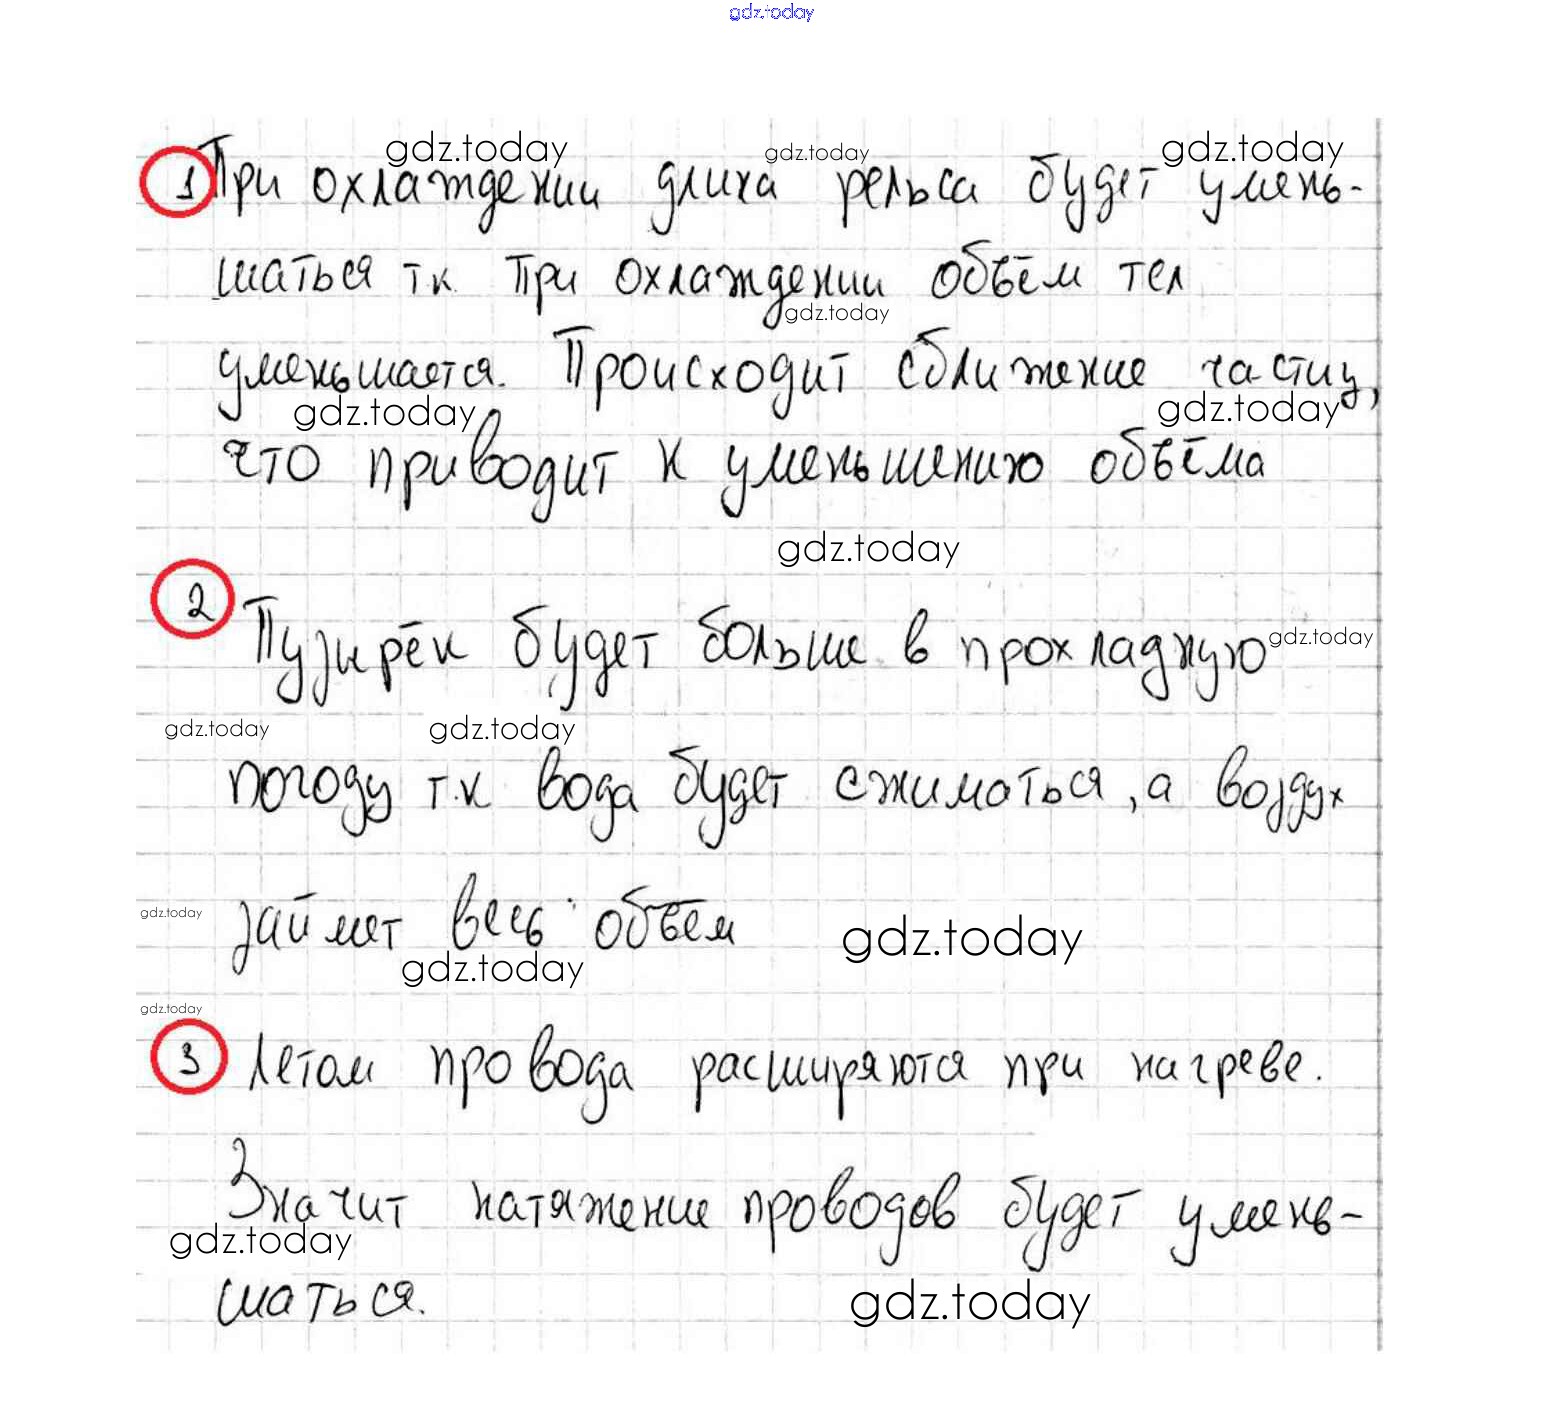 gdz.today
gdz.today gdz.today gdz.today
1 При охлаждении длина рельса будет умень-
шаться т к при охлаждении объём тел
gdz.today
уменьшается. Происходит сближение частиц,
gdz.today gdz.today
что приводит к уменьшению объёма
gdz.today
2 Пузырёк будет больше в прохладную gdz.today
gdz.today gdz.today
погоду т.к вода будет сжиматься, а воздух
gdz.today
займет весь объем gdz.today
gdz.today
gdz.today
3 Летом провода расширяются при нагреве.
Значит натяжение проводов будет умень-
gdz.today
шаться. gdz.today